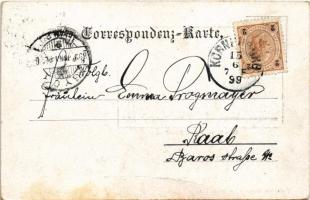 Correspondenz-Karte.
KORN
15
6
7
99
2
2
Wolgb.
Fräulein Emma Progmayer
Raab
Baros straße